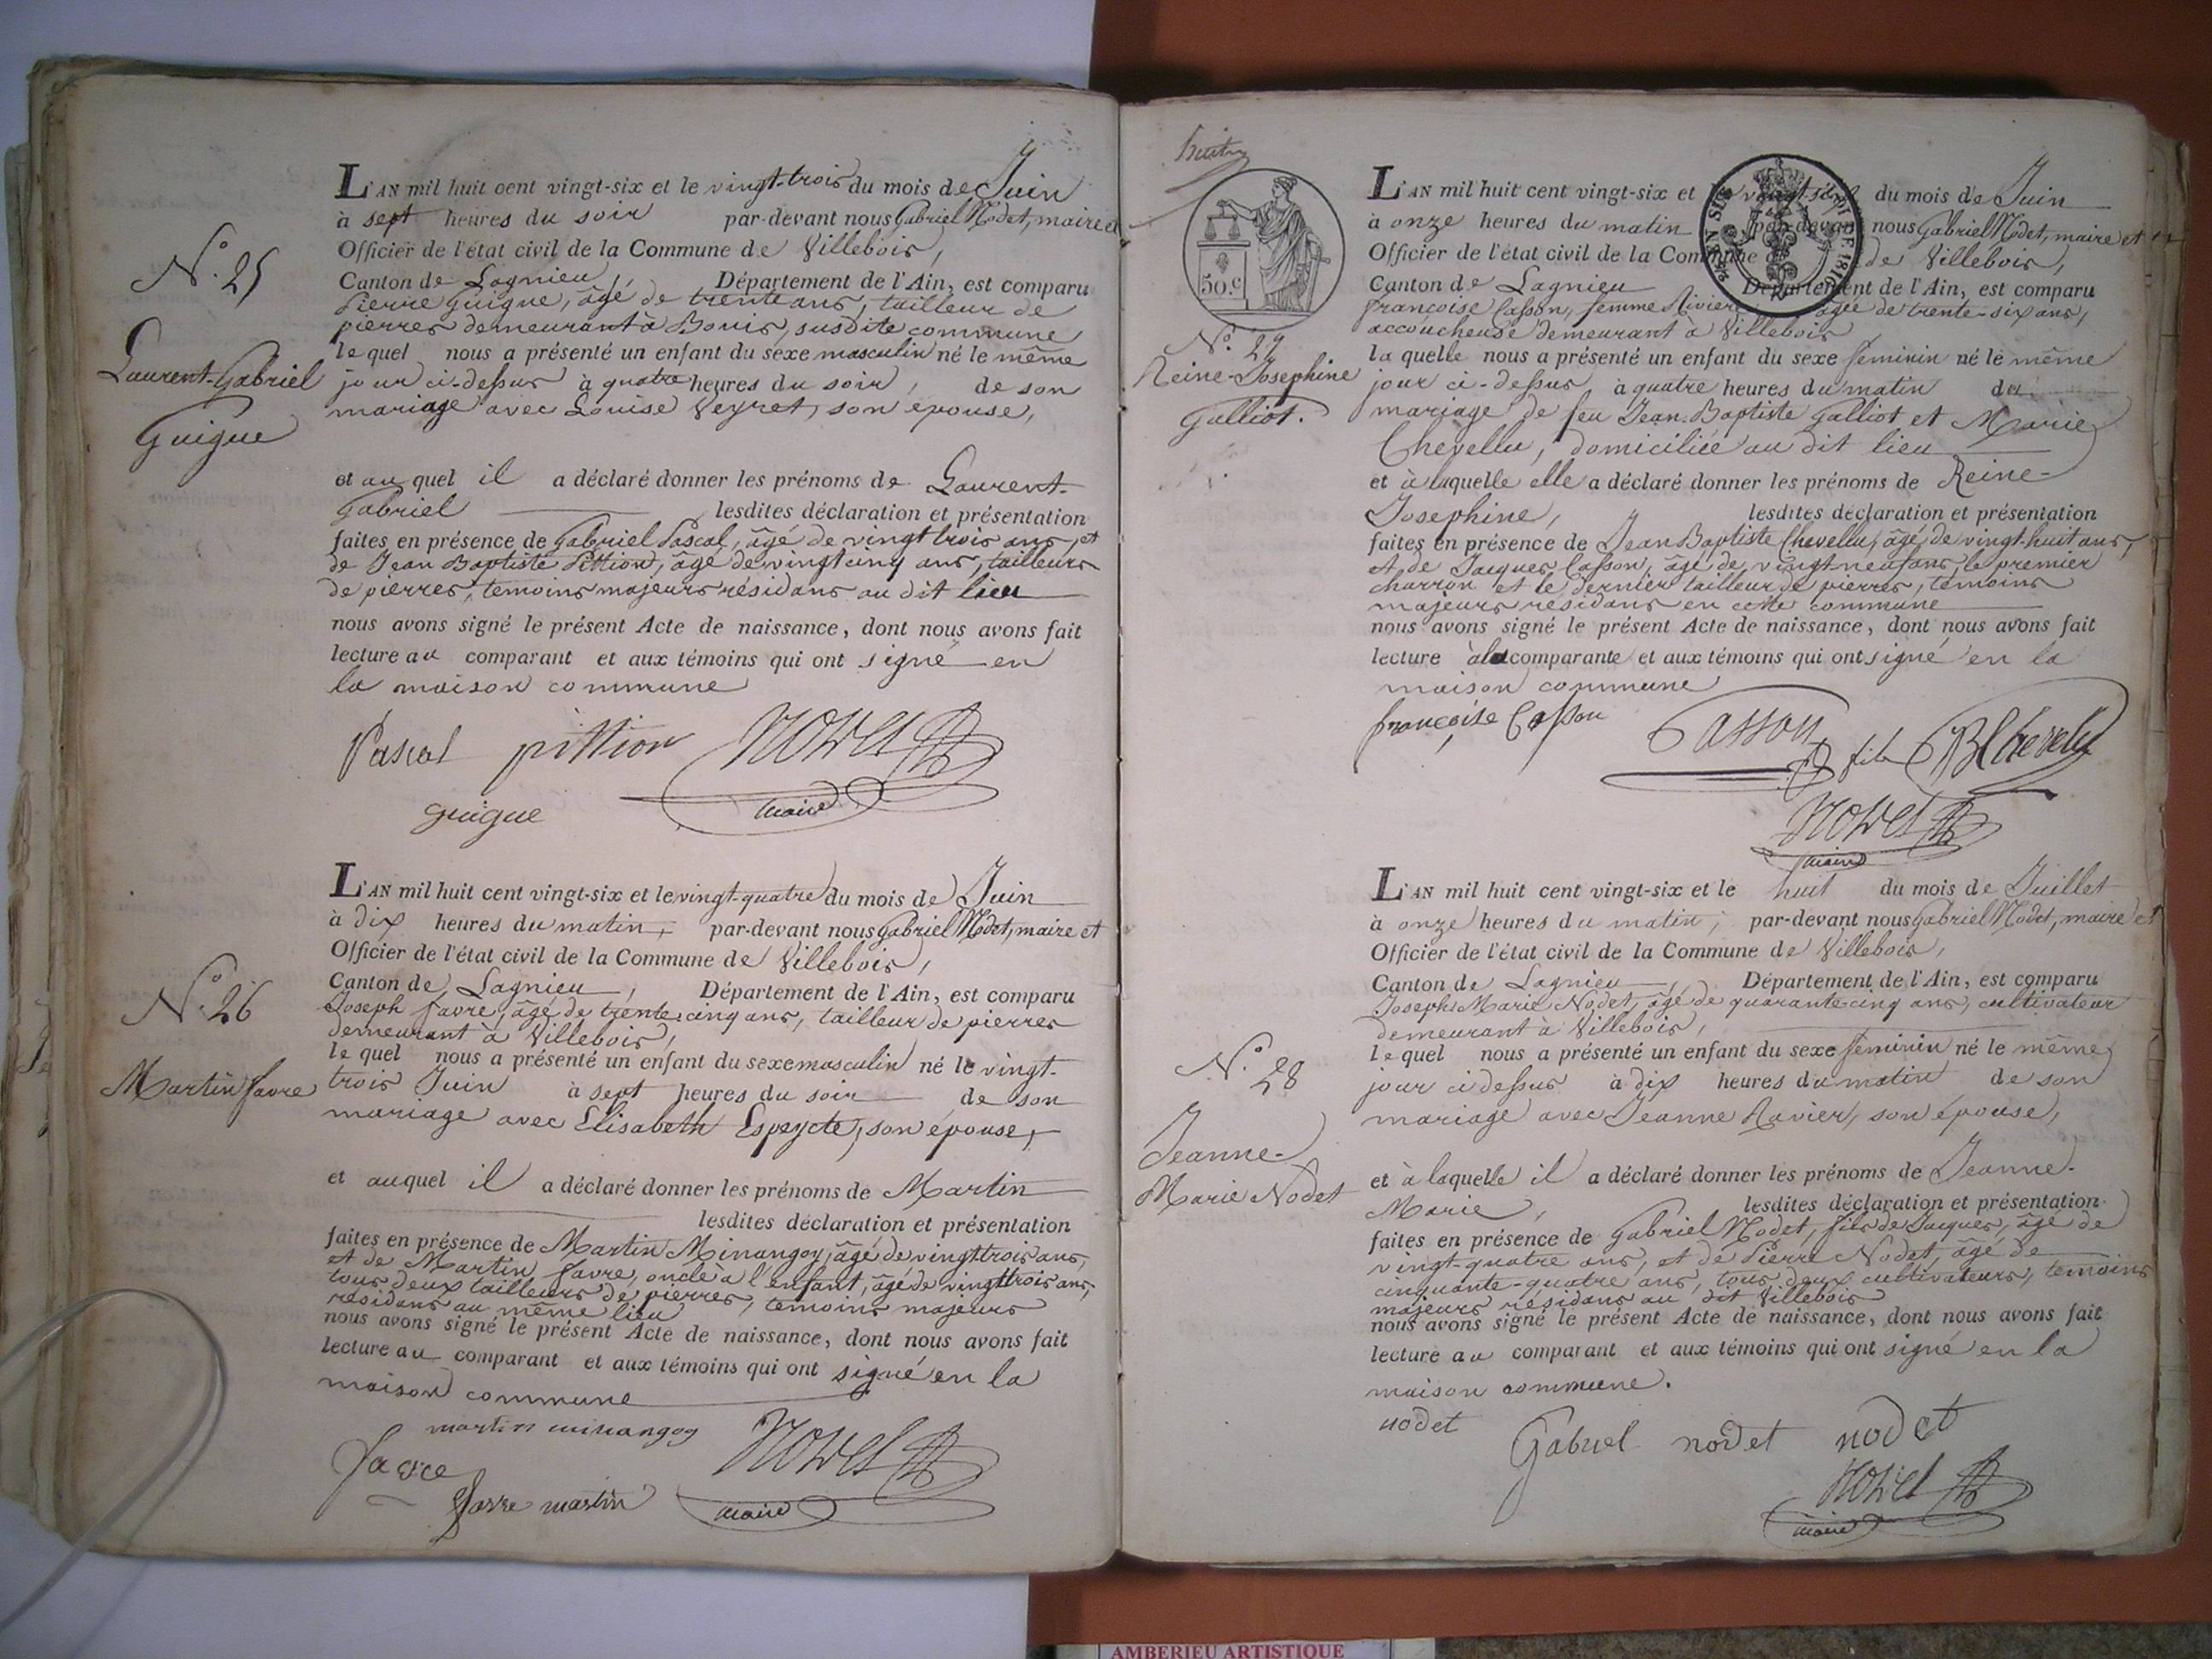 N.° 25
Laurent-Gabriel
Guigue
L'AN mil huit cent vingt-six et le vingt-trois du mois de Juin
à sept heures du soir par-devant nous Gabriel Nodet, maire et
Officier de l'état civil de la Commune de Villebois,
Canton de Lagnieu, Département de l'Ain, est comparu
Pierre Guigue, âgé de trente ans, tailleur de
pierres demeurant à Bouis, susdite commune
le quel nous a présenté un enfant du sexe masculin né le même
jour ci-dessus à quatre heures du soir, de son
mariage avec Louise Veyret, son épouse,
et au quel il a déclaré donner les prénoms de Laurent-
Gabriel lesdites déclaration et présentation
faites en présence de Gabriel Pascal, âgé de vingt trois ans, et
de Jean Baptiste Pittion, âgé de vingt cinq ans, tailleurs
de pierres, temoins majeurs résidans au dit lieu
nous avons signé le présent Acte de naissance, dont nous avons fait
lecture au comparant et aux témoins qui ont signé en
la maison commune
Pascal pittion Nodet
maire
guigue
N.° 26
Martin favre
L'AN mil huit cent vingt-six et le vingt-quatre du mois de Juin
à dix heures du matin, par-devant nous Gabriel Nodet, maire et
Officier de l'état civil de la Commune de Villebois,
Canton de Lagnieu, Département de l'Ain, est comparu
Joseph favre, âgé de trente cinq ans, tailleur de pierres
demeurant à Villebois,
le quel nous a présenté un enfant du sexe masculin né le vingt-
trois Juin à sept heures du soir de son
mariage avec Elisabeth Espeycte, son épouse,
et auquel il a déclaré donner les prénoms de Martin
lesdites déclaration et présentation
faites en présence de Martin Minangoy, âgé de vingt trois ans,
et de Martin favre, oncle à l'enfant, âgé de vingt trois ans,
tous deux tailleurs de pierres, temoins majeurs
résidans au même lieu
nous avons signé le présent Acte de naissance, dont nous avons fait
lecture au comparant et aux témoins qui ont signé en la
maison commune
martin minangoy Nodet
favre
favre martin maire
huit
50.c
N.° 27
Reine-Josephine
Galliot.
L'AN mil huit cent vingt-six et le vingt-sept du mois de Juin
à onze heures du matin par-devant nous Gabriel Nodet, maire et
Officier de l'état civil de la Commune de Villebois,
Canton de Lagnieu Département de l'Ain, est comparu
françoise Casson, femme Rivière âgée de trente-six ans,
accoucheuse demeurant à Villebois
la quelle nous a présenté un enfant du sexe féminin né le même
jour ci-dessus à quatre heures du matin du
mariage de feu Jean-Baptiste Galliot et Marie
Chevellu, domiciliée au dit lieu
et à laquelle elle a déclaré donner les prénoms de Reine-
Josephine, lesdites déclaration et présentation
faites en présence de Jean Baptiste Chevellu, âgé de vingt-huit ans,
et de Jacques Casson, âgé de vingt neuf ans, le premier
charron et le dernier tailleur de pierres, temoins
majeurs résidans en cette commune
nous avons signé le présent Acte de naissance, dont nous avons fait
lecture à la comparante et aux témoins qui ont signé en la
maison commune
françoise Casson Casson fils JB Chevelu
Nodet
maire
N.° 28
Jeanne-
Marie Nodet
L'AN mil huit cent vingt-six et le huit du mois de Juillet
à onze heures du matin, par-devant nous Gabriel Nodet, maire et
Officier de l'état civil de la Commune de Villebois,
Canton de Lagnieu, Département de l'Ain, est comparu
Joseph Marie Nodet, âgé de quarante cinq ans, cultivateur
demeurant à Villebois,
le quel nous a présenté un enfant du sexe féminin né le même
jour ci dessus à dix heures du matin de son
mariage avec Jeanne Ravier, son épouse,
et à laquelle il a déclaré donner les prénoms de Jeanne-
Marie, lesdites déclaration et présentation
faites en présence de Gabriel Nodet, fils de Jacques, âgé de
vingt-quatre ans, et de Pierre Nodet, âgé de
cinquante-quatre ans, tous deux cultivateurs, temoins
majeurs résidans au dit Villebois
nous avons signé le présent Acte de naissance, dont nous avons fait
lecture au comparant et aux témoins qui ont signé en la
maison commune.
nodet Gabriel nodet nodet
Nodet
maire
AMBERIEU ARTISTIQUE